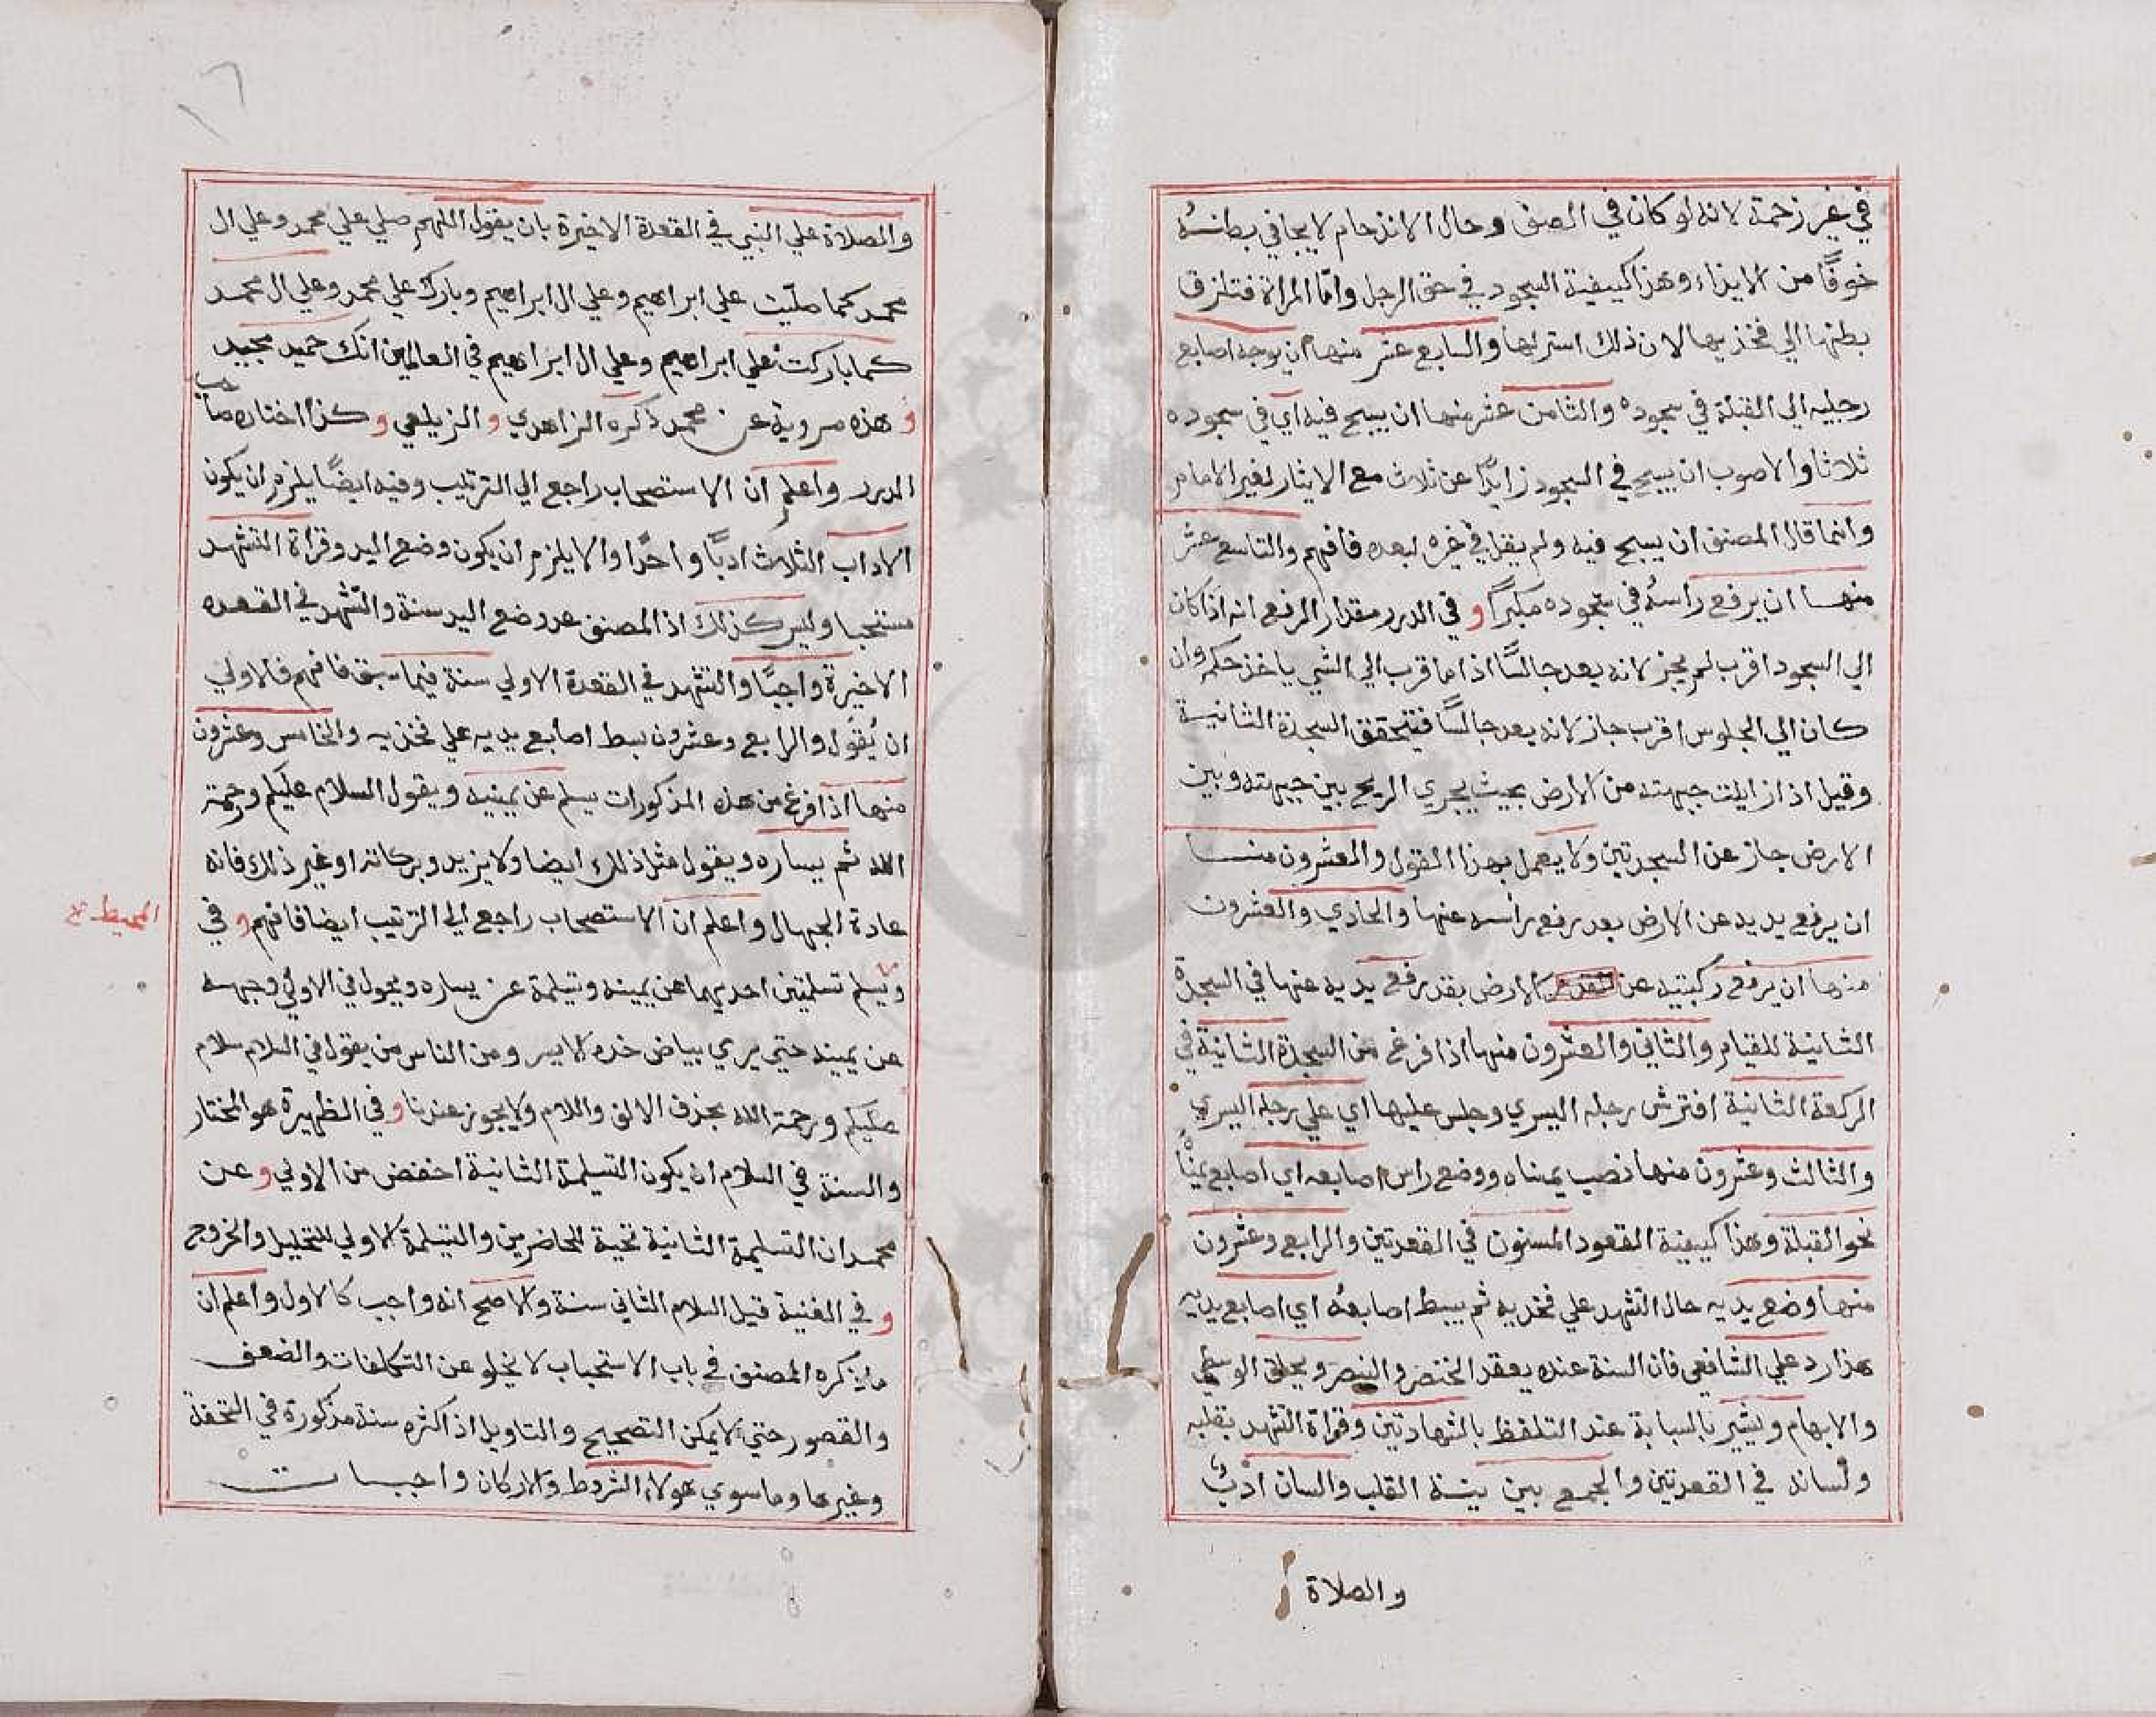 في غير زحمة لانه لو كان في الصف وحال الازدحام لا يجافي بطنه
خوفًا من الايذاء وهذا كيفية السجود في حق الرجل وامّا المراة فتلزق
بطنها الي فخذيها لان ذلك استر لها والسابع عشر منها ان يوجه اصابع
رجليه الي القبلة في سجوده والثامن عشر منها ان يسبح فيه اي في سجوده
ثلاثا والاصوب ان يسبح في السجود زايدًا عن ثلاث مع الايثار لغير الامام
وانما قال المصنف ان يسبح فيه ولم يقل في غيره لبعده فافهم والتاسع عشر
منها ان يرفع راسهُ في سجوده مكبرًا و في الدرر مقدار الرفع انه اذا كان
الي السجود اقرب لم يجز لانه يعد جالسًا اذ ما قرب الي الشي ياخذ حكمه وان
كان الي الجلوس اقرب جاز لانه يعد جالسًا فتتحقق السجدة الثانية
وقيل اذا زايلت جبهته من الارض بحيث يجري الريح بين جبهته وبين
الارض جاز عن السجدتين ولا يعمل بهذا القول والعشرون منها
ان يرفع يديه عن الارض بعد رفع راسه عنها والحادي والعشرون
منها ان يرفع ركبتيه عن الارض بعد رفع يديه عنها في السجدة
الثانية للقيام والثاني والعشرون منها اذا فرغ من السجدة الثانية في
الركعة الثانية افترش رجله اليسري وجلس عليها اي علي رجله اليسري
والثالث وعشرون منها نصب يمناه ووضع راس اصابعه اي اصابع يمناه
نحو القبلة وهذا كيفية القعود المسنون في القعدتين والرابع وعشرون
منها وضع يديه حال التشهد علي فخذيه ثم يبسط اصابعهُ اي اصابع يديه
هذا رد علي الشافعي فان السنة عنده يعقد الخنصر والبنصر ويحلق الوسطي
والابهام ويشير بالسبابة عند التلفظ بالشهادتين وقراة التشهد بقلبه
ولسانه في القعدتين والجمع بين نية القلب واللسان ادبٌ
والصلاة
والصلاة علي النبي في القعدة الاخيرة بان يقول اللهم صلي علي محمد وعلي ال
محمد كما صليت علي ابراهيم وعلي ال ابراهيم وبارك علي محمد وعلي ال محمد
كما باركت علي ابراهيم وعلي ال ابراهيم في العالمين انك حميد مجيد
و هذه مروية عن محمد ذكره الزاهدي و الزيلعي و كذا اختاره صاحب
الدرر واعلم ان الاستصحاب راجع الي الترتيب وفيه ايضًا يلزم ان يكون
الاداب الثلاث ادبًا واحدًا والا يلزم ان يكون وضع اليد وقراة التشهد
مستحبا وليس كذلك اذ المصنف عد وضع اليد سنة والتشهد في القعده
الاخيرة واجبًا والتشهد في القعدة الاولي سنة فيما سبق فافهم فالاولي
ان يُقول والرابع وعشرون بسط اصابع يديه علي فخذيه والخامس وعشرون
منها اذا فرغ من هذه المذكورات يسلم عن يمينه ويقول السلام عليكم ورحمة
الله ثم يساره ويقول مثل ذلك ايضا ولا يزيد وبركاته او غير ذلك فانه
عادة الجهال واعلم ان الاستصحاب راجع الي الترتيب ايضا فافهم و في
المحيط
ويسلم تسليمتين احديهما عن يمينه وتسليمة عن يساره ويحول في الاولي وجهه
عن يمينه حتي يري بياض خده الايسر ومن الناس من يقول في السلام سلام
عليكم ورحمة الله بحذف الالف واللام ولا يجوز عندنا و في الظهيرة هو المختار
والسنة في السلام ان يكون التسليمة الثانية اخفض من الاولي و عن
محمد ان التسليمة الثانية تحية للحاضرين والتسليمة الاولي للتحليل والخروج
و في الغنية قيل السلام الثاني سنة والاصح انه واجب كالاول واعلم ان
ما ذكره المصنف في باب الاستحباب لا يخلو عن التكلفات والضعف
والقصور حتي لا يمكن التصحيح والتاويل اذ اكثره سنة مذكورة في التحفة
وغيرها وما سوي هولاء الشروط والاركان واجبات